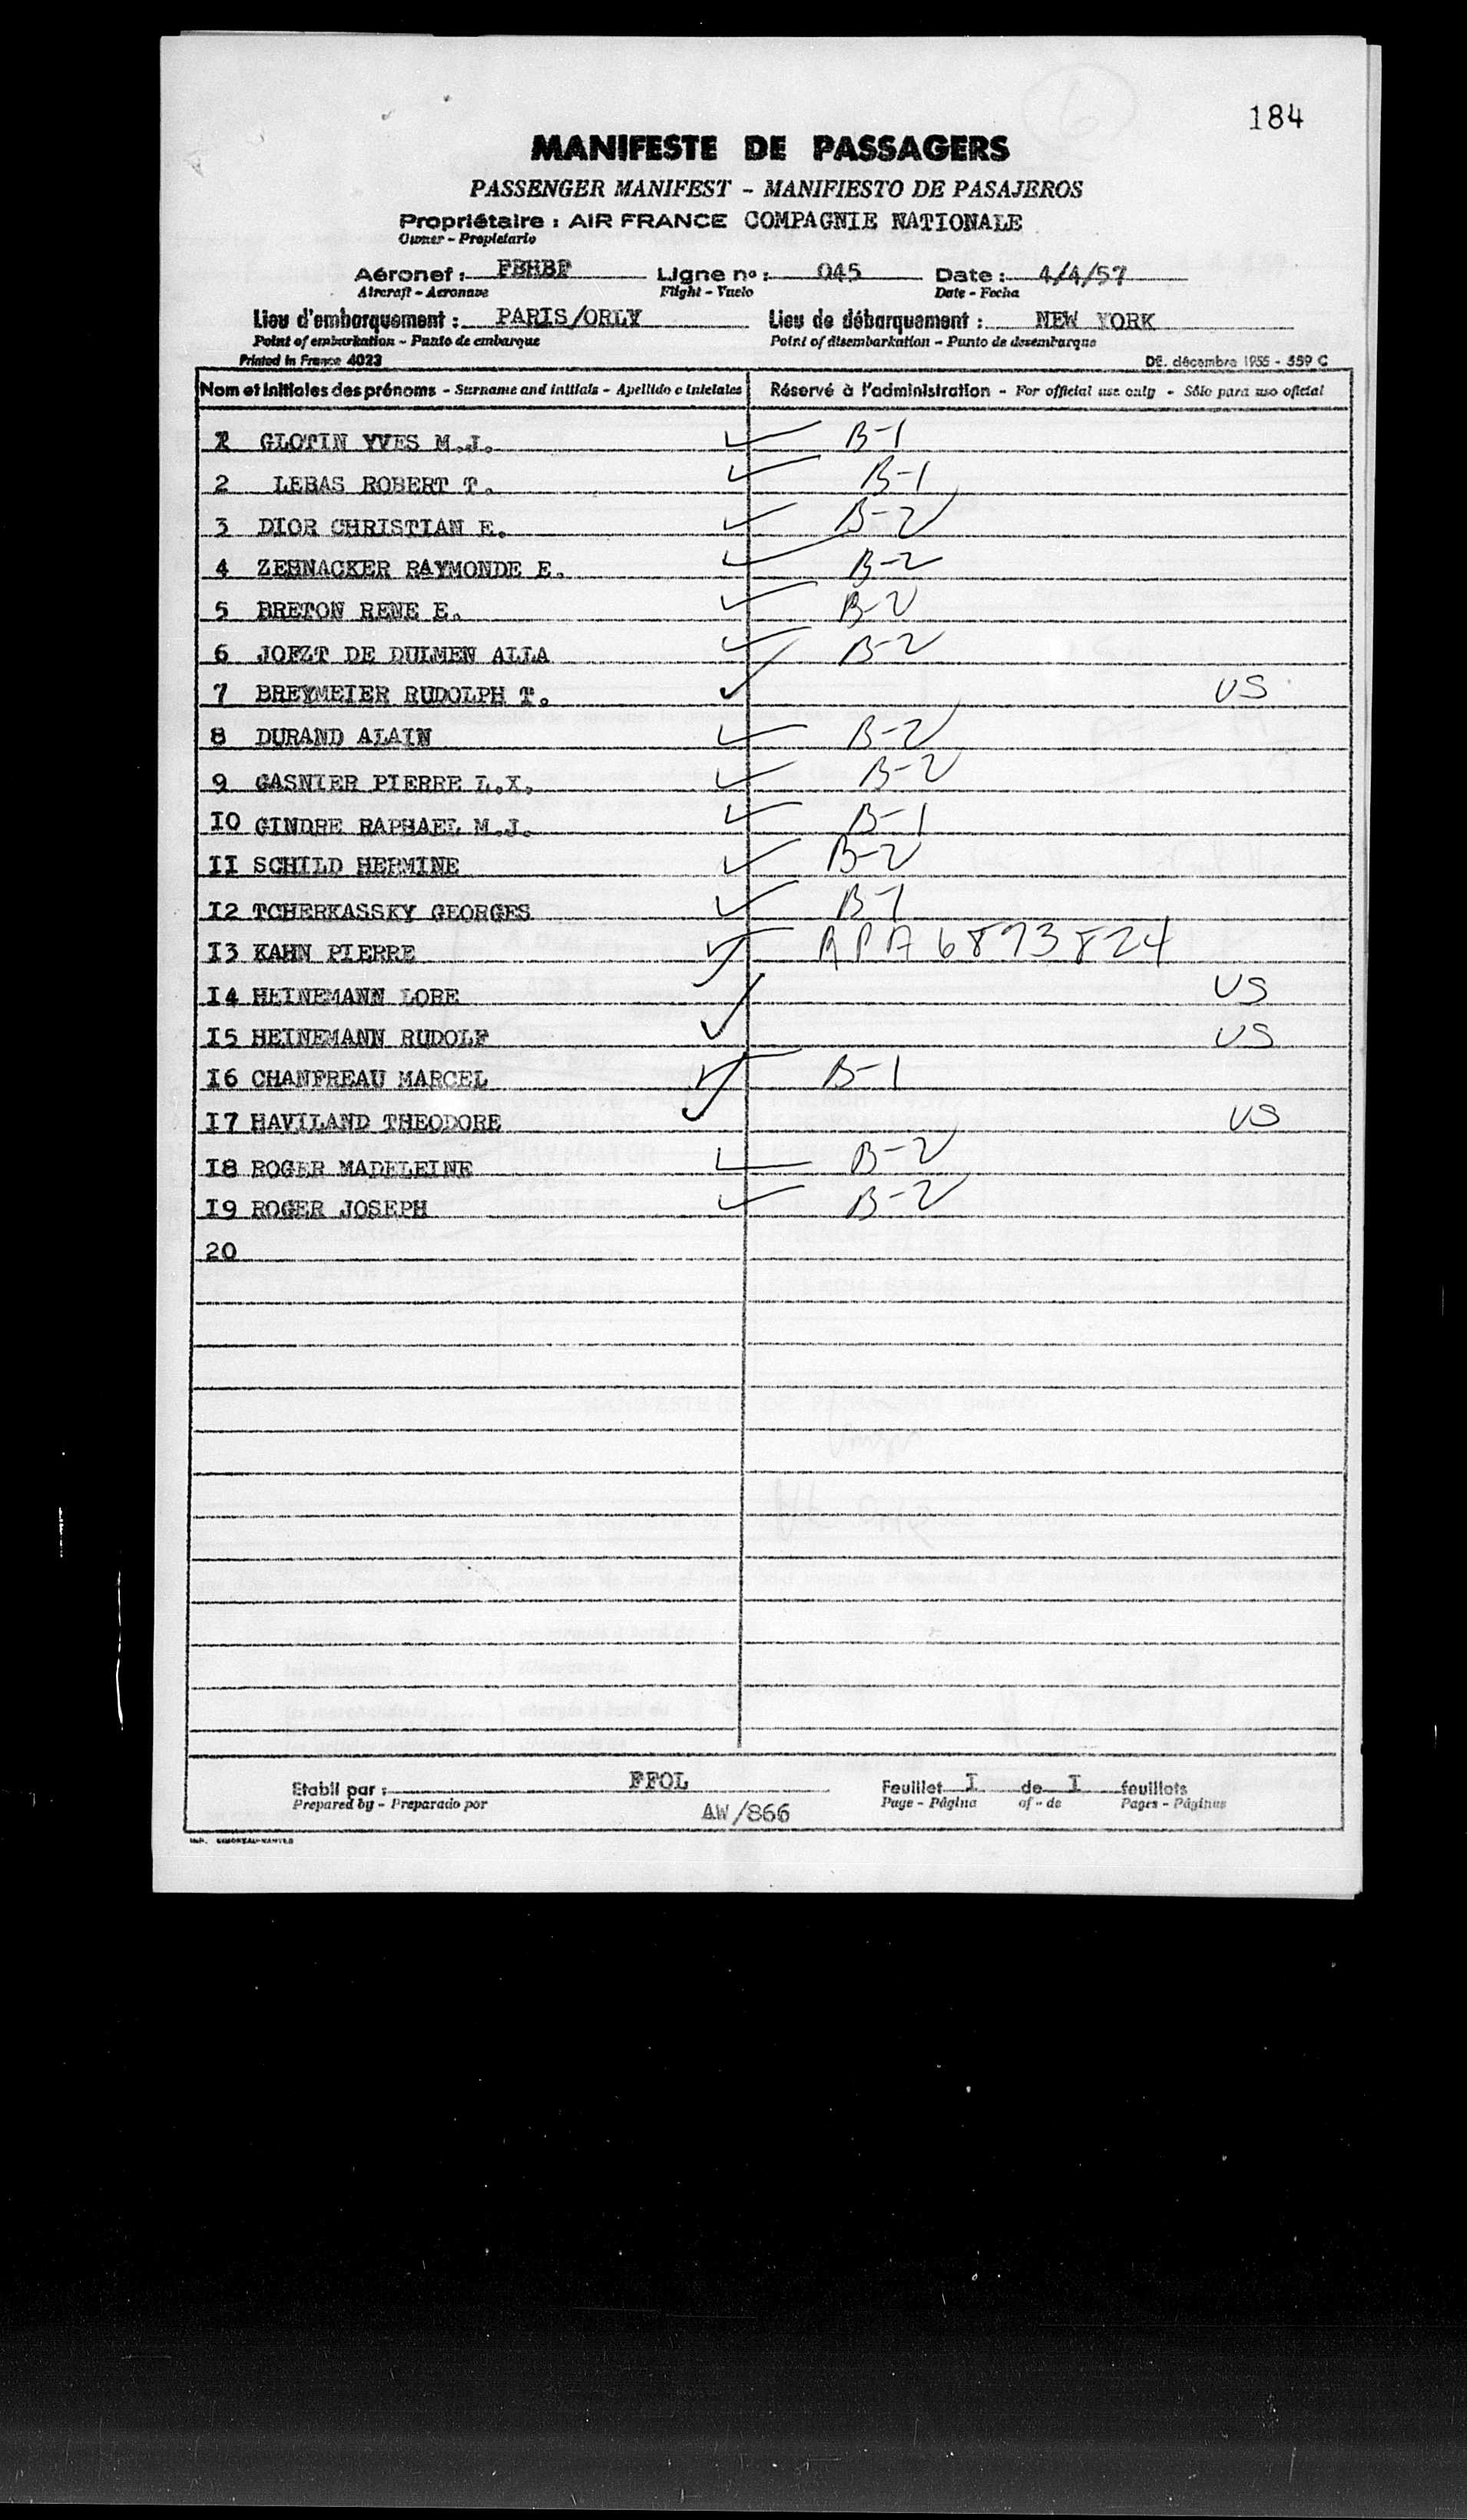 184
MANIFESTE DE PASSAGERS
PASSENGER MANIFEST - MANIFIESTO DE PASAJEROS
Propriétaire : AIR FRANCE COMPAGNIE NATIONALE
Owner - Propietario
Aéronef : FBHBF Ligne nº : 045 Date : 4/4/57
Aircraft - Aeronave Flight - Vuelo Date - Fecha
Lieu d'embarquement : PARIS/ORLY Lieu de débarquement : NEW YORK
Point of embarkation - Punto de embarque Point of disembarkation - Punto de desembarque
Printed in France 4023 DE. décembre 1955 - 359 C
Nom et initiales des prénoms - Surname and initials - Apellido e iniciales Réservé à l'administration - For official use only - Sólo para uso oficial
1 GLOTIN YVES M.J. ✓ B-1
2 LEBAS ROBERT T. ✓ B-1
3 DIOR CHRISTIAN E. ✓ B-2
4 ZEHNACKER RAYMONDE E. ✓ B-2
5 BRETON RENE E. ✓ B-2
6 JOEZT DE DULMEN ALLA ✓ B-2
7 BREYMEIER RUDOLPH T. ✓ US
8 DURAND ALAIN ✓ B-2
9 GASNIER PIERRE L.X. ✓ B-2
I0 GINDRE RAPHAEL M.J. ✓ B-1
II SCHILD HERMINE ✓ B-2
I2 TCHERKASSKY GEORGES ✓ B-1
I3 KAHN PIERRE ✓ RPA 6873824
I4 HEINEMANN LORE US
I5 HEINEMANN RUDOLF ✓ US
I6 CHANFREAU MARCEL ✓ B-1
I7 HAVILAND THEODORE ✓ US
I8 ROGER MADELEINE ✓ B-2
I9 ROGER JOSEPH ✓ B-2
20
Etabli par : FFOL Feuillet I de I feuillets
Prepared by - Preparado por AW/866 Page - Página of - de Pages - Páginas